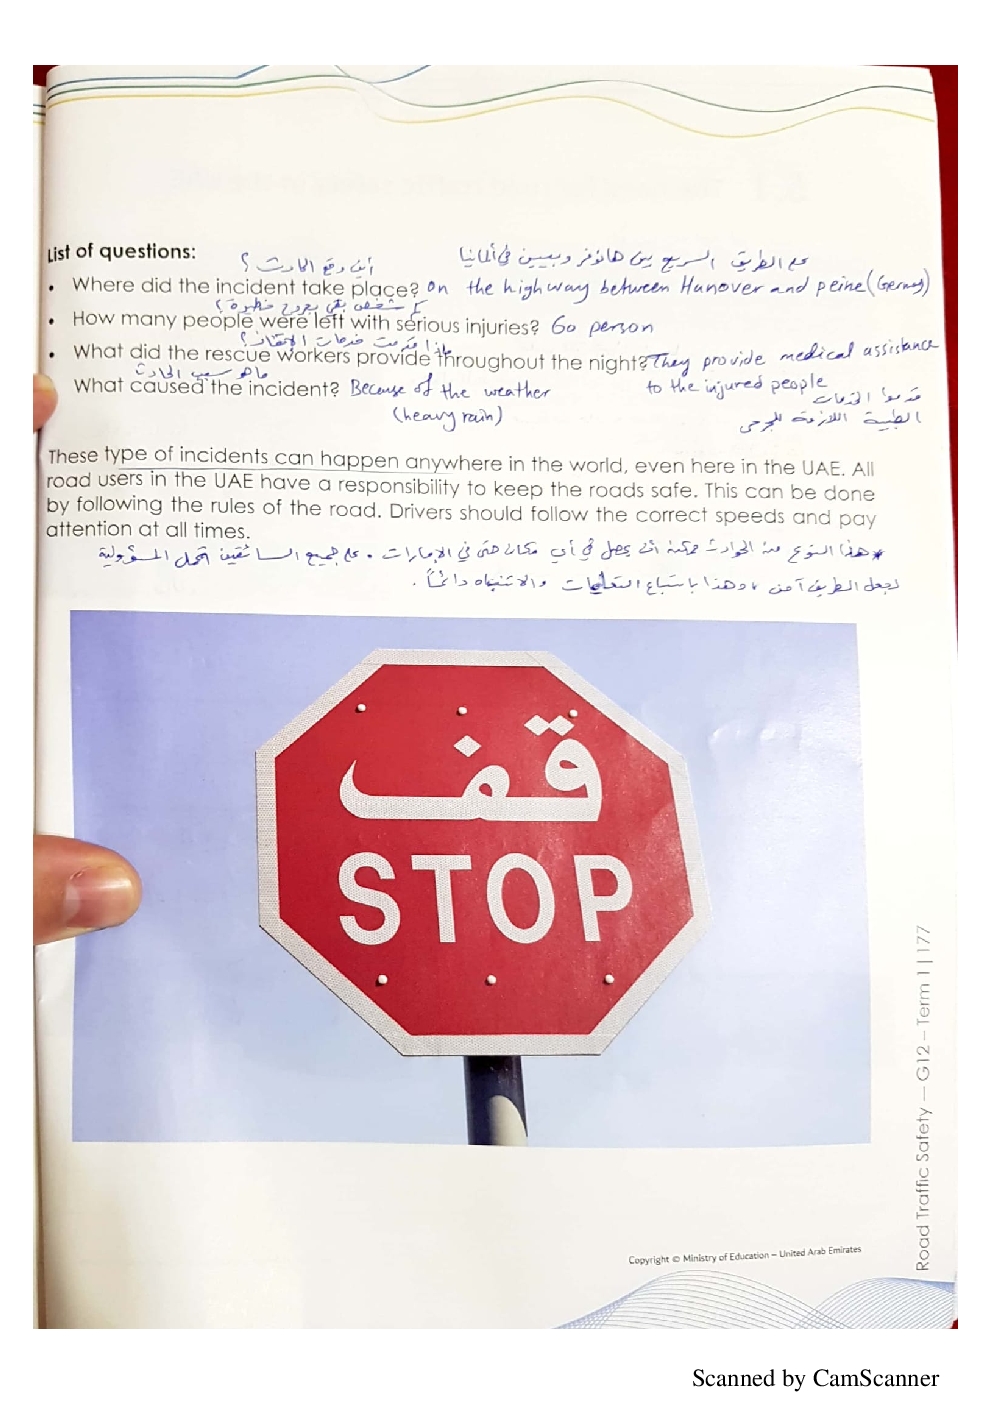 List of questions:
على الطريق السريع بين هانوفر وبيين في ألمانيا
أين وقع الحادث ؟
• Where did the incident take place? On the highway between Hanover and peine (Germany)
كم شخص بقي بجروح خطيرة ؟
• How many people were left with serious injuries? 60 person
ماذا قدمت خدمات الإنقاذ ؟
• What did the rescue workers provide throughout the night? They provide medical assistance
ما هو سبب الحادث
What caused the incident? Because of the weather to the injured people
(heavy rain)
قدموا الخدمات
الطبية اللازمة للجرحى
These type of incidents can happen anywhere in the world, even here in the UAE. All
road users in the UAE have a responsibility to keep the roads safe. This can be done
by following the rules of the road. Drivers should follow the correct speeds and pay
attention at all times.
* هذا النوع من الحوادث ممكنة أن يحصل في أي مكان حتى في الإمارات . على جميع السائقين تحمل المسؤولية
لجعل الطريق آمن ، وهذا باتباع التعليمات والانتباه دائماً .
قف
STOP
Road Traffic Safety — G12 – Term 1 | 177
Copyright © Ministry of Education – United Arab Emirates
Scanned by CamScanner